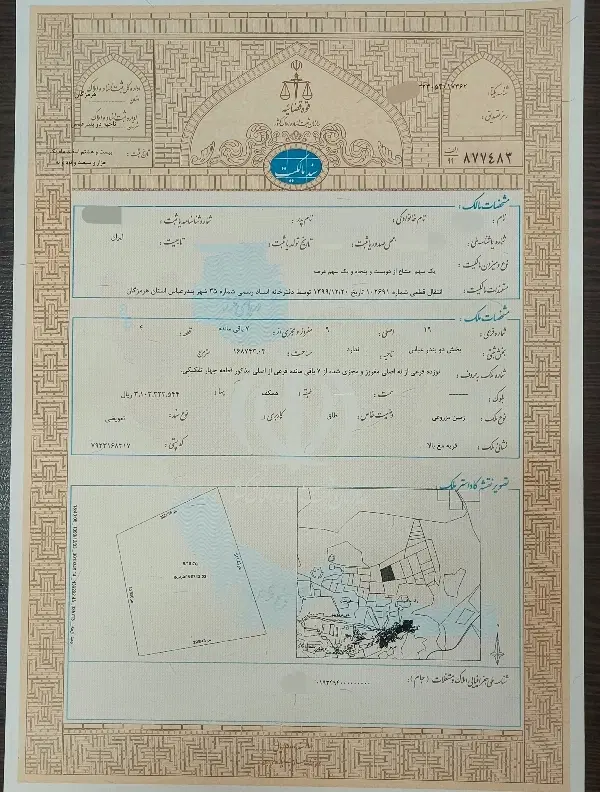 قوه قضائیه
سند مالکیت
۸۷۷۴۸۳
مشخصات مالک :
نام :
نام خانوادگی :
نام پدر :
شماره شناسنامه یا ثبت :
شماره یا شناسه ملی :
محل صدور یا ثبت :
تاریخ تولد یا ثبت :
تابعیت :
ایران
نوع و میزان مالکیت :
یک سهم مشاع از دویست و پنجاه و یک سهم عرصه
مستندات مالکیت :
انتقال قطعی شماره ۱۰۲۶۹۱ تاریخ ۱۳۹۹/۱۲/۲۰ توسط دفترخانه اسناد رسمی شماره ۳۵ شهر بندرعباس استان هرمزگان
مشخصات ملک :
شماره فرعی :
۱۹
اصلی :
۹
مفروز و مجزی از :
۷ باقی مانده
قطعه :
۴
بخش ثبتی :
بخش دو بندر عباس
ناحیه :
ندارد
مساحت :
۱۶۸۷۴۳.۰۲
مترمربع
شماره ملک به حروف :
نوزده فرعی از نه اصلی مفروز و مجزی شده از ۷ باقی مانده فرعی از اصلی مذکور قطعه چهار تفکیکی
بلوک :
سمت :
طبقه :
همکف
بها :
۳,۱۰۳,۳۳۳,۵۴۴ ریال
نوع ملک :
زمین مزروعی
وضعیت خاص :
طلق
کاربری :
نوع سند :
تعویضی
نشانی ملک :
قریه مغ بالا
کد پستی :
۷۹۳۳۱۶۸۳۱۷
تصویر نقشه کاداستر ملک
شناسه ملی جغرافیایی املاک و مستغلات ( جام ) :